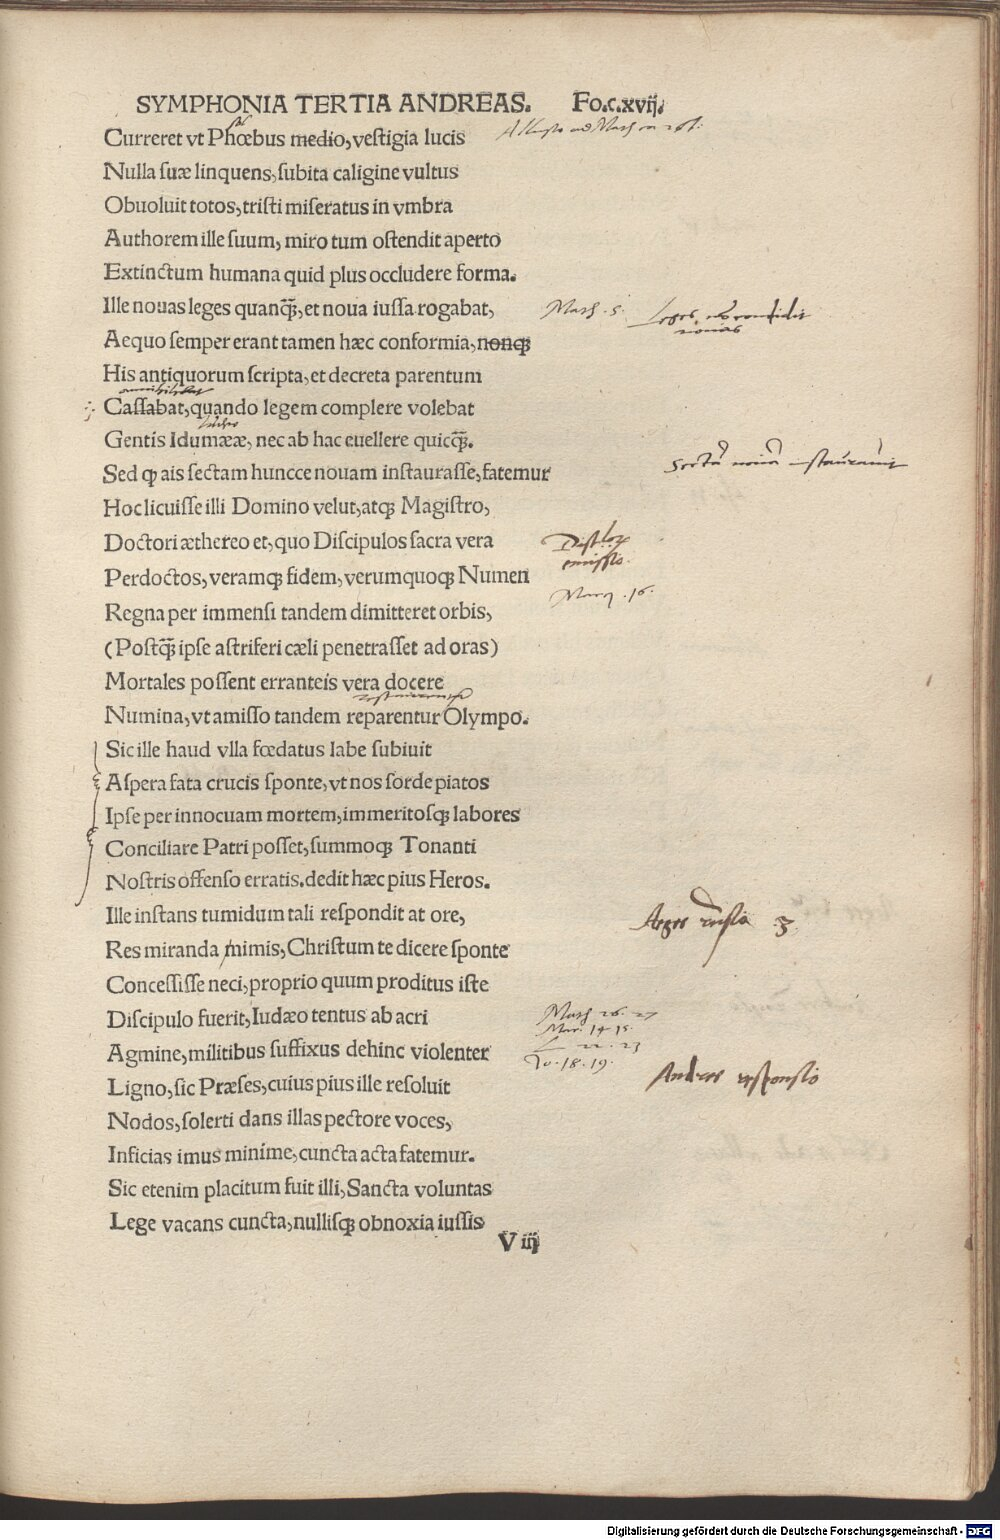 SYMPHONIA TERTIA ANDREAS. Fo.c.xvij.
Curreret vt Phœbus medio, vestigia lucis
Nulla suæ linquens, subita caligine vultus
Obuoluit totos, tristi miseratus in vmbra
Authorem ille suum, miro tum ostendit aperto
Extinctum humana quid plus occludere forma.
Ille nouas leges quanqȝ̃, et noua iussa rogabat,
Math. 5.
Leges
nouas
Aequo semper erant tamen hæc conformia, nonqȝ
His antiquorum scripta, et decreta parentum
Cassabat, quando legem complere volebat
Gentis Idumææ, nec ab hac euellere quicqȝ̃.
Sed qȝ ais sectam huncce nouam instaurasse, fatemur
Hoc licuisse illi Domino velut, atqȝ Magistro,
Doctori æthereo et, quo Discipulos sacra vera
Perdoctos, veramqȝ fidem, verumquoqȝ Numen
Marc. 16.
Regna per immensi tandem dimitteret orbis,
(Postqȝ̃ ipse astriferi cæli penetrasset ad oras)
Mortales possent erranteis vera docere
Numina, vt amisso tandem reparentur Olympo.
Sic ille haud vlla fœdatus labe subiuit
Aspera fata crucis sponte, vt nos sorde piatos
Ipse per innocuam mortem, immeritosqȝ labores
Conciliare Patri posset, summoqȝ Tonanti
Nostris offenso erratis. dedit hæc pius Heros.
Ille instans tumidum tali respondit at ore,
Res miranda nimis, Christum te dicere sponte
Concessisse neci, proprio quum proditus iste
Discipulo fuerit, Iudæo tentus ab acri
Math 26. 27
Mar. 14 15
L 22. 23
Io. 18. 19.
Agmine, militibus suffixus dehinc violenter
Andree responsio
Ligno, sic Præses, cuius pius ille resoluit
Nodos, solerti dans illas pectore voces,
Inficias imus minime, cuncta acta fatemur.
Sic etenim placitum fuit illi, Sancta voluntas
Lege vacans cuncta, nullisqȝ obnoxia iussis
V iij
Digitalisierung gefördert durch die Deutsche Forschungsgemeinschaft - DFG